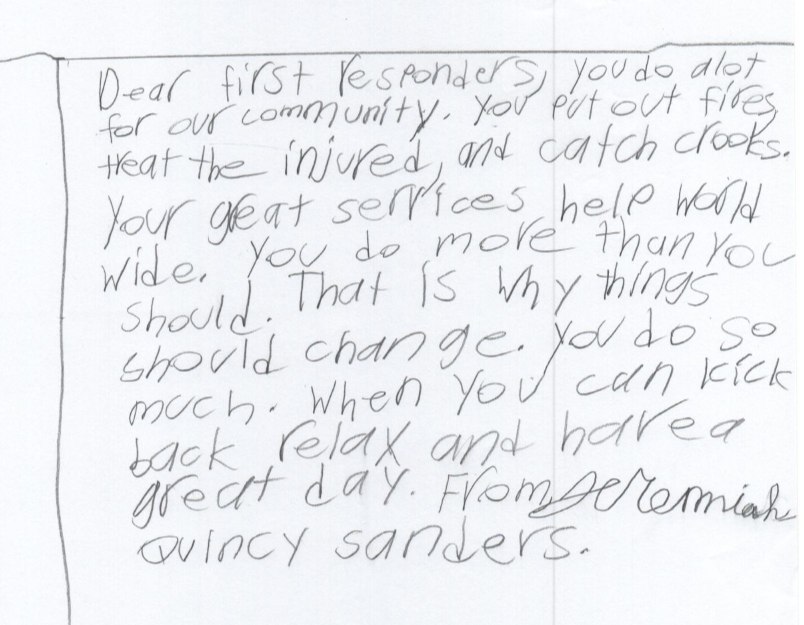 Dear first responders, you do alot
for our community. You put out fires,
treat the injured, and catch crooks.
Your great services help world
wide. You do more than you
should. That is why things
should change. You do so
much. When you can kick
back relax and have a
great day. From Jeremiah
Quincy sanders.